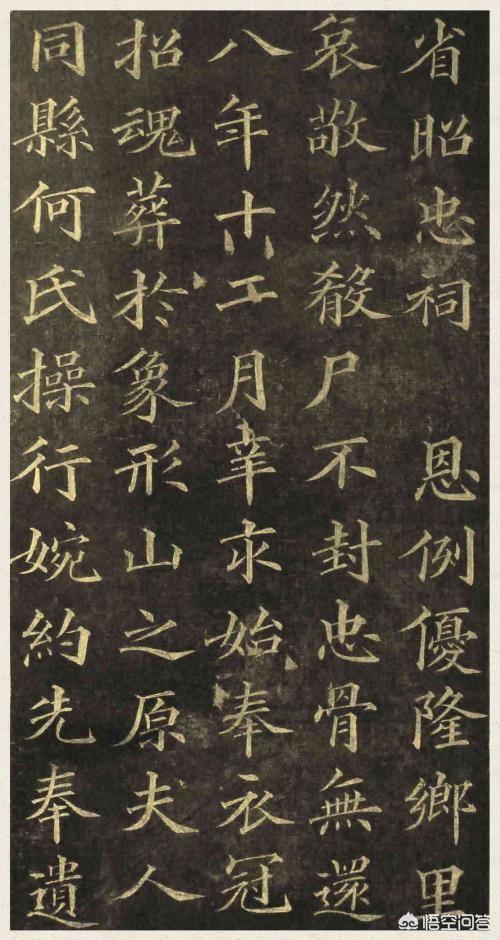 省昭忠祠 恩例優隆鄉里
哀敬然殽尸不封忠骨無還
八年十工月辛未始奉衣冠
招魂葬於象形山之原夫人
同縣何氏操行婉約先奉遺
悟空问答